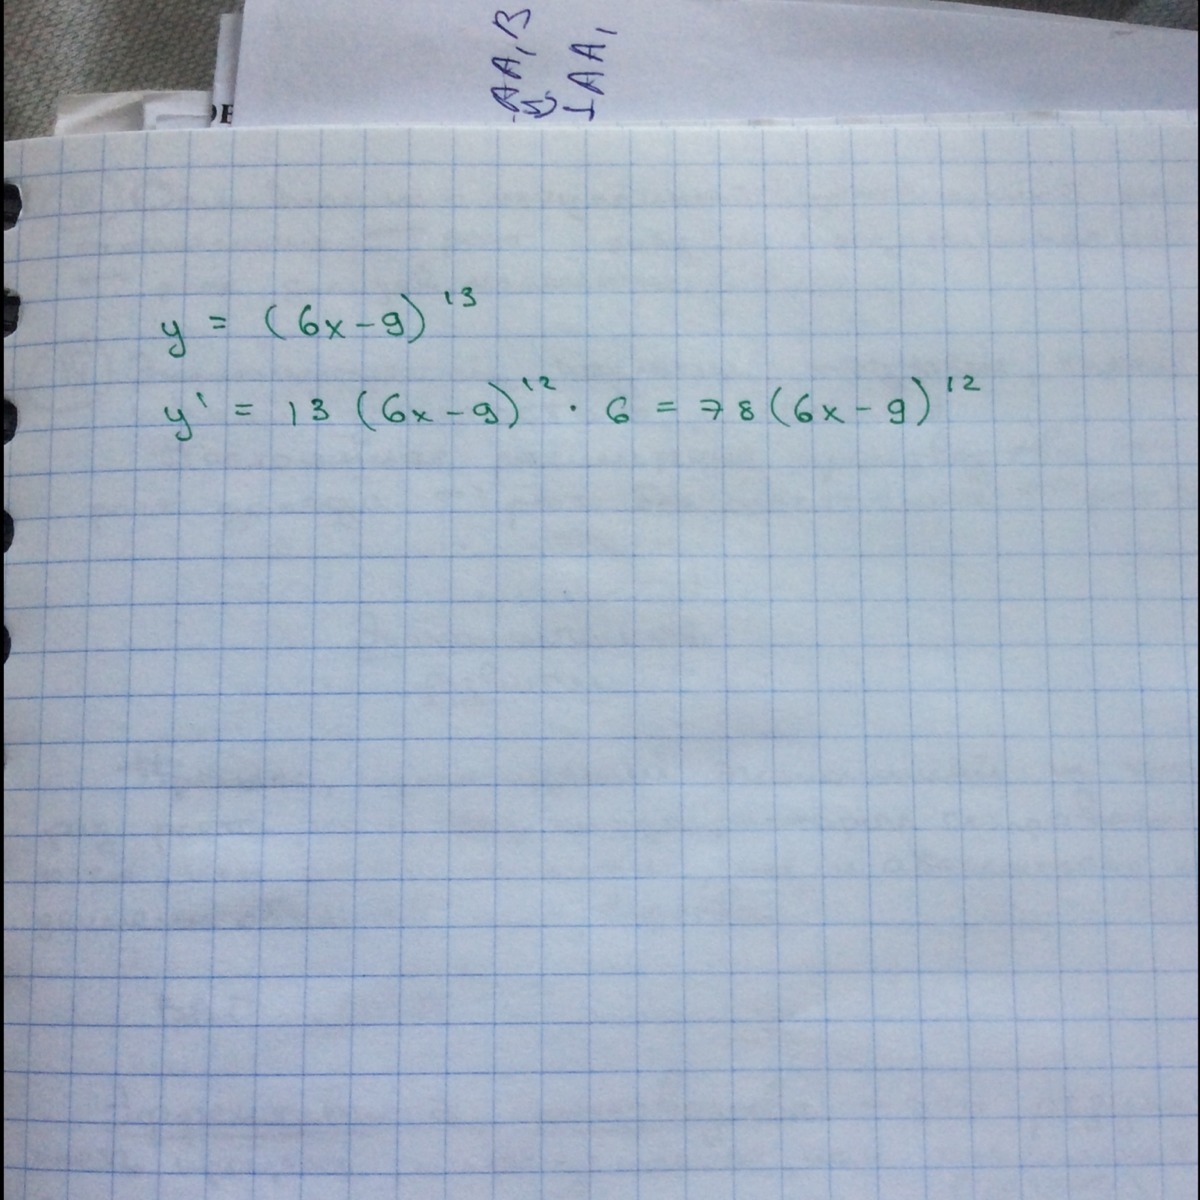 AA₁B
⊥AA₁
y = (6x-9)¹³
y' = 13 (6x-9)¹² · 6 = 78(6x-9)¹²